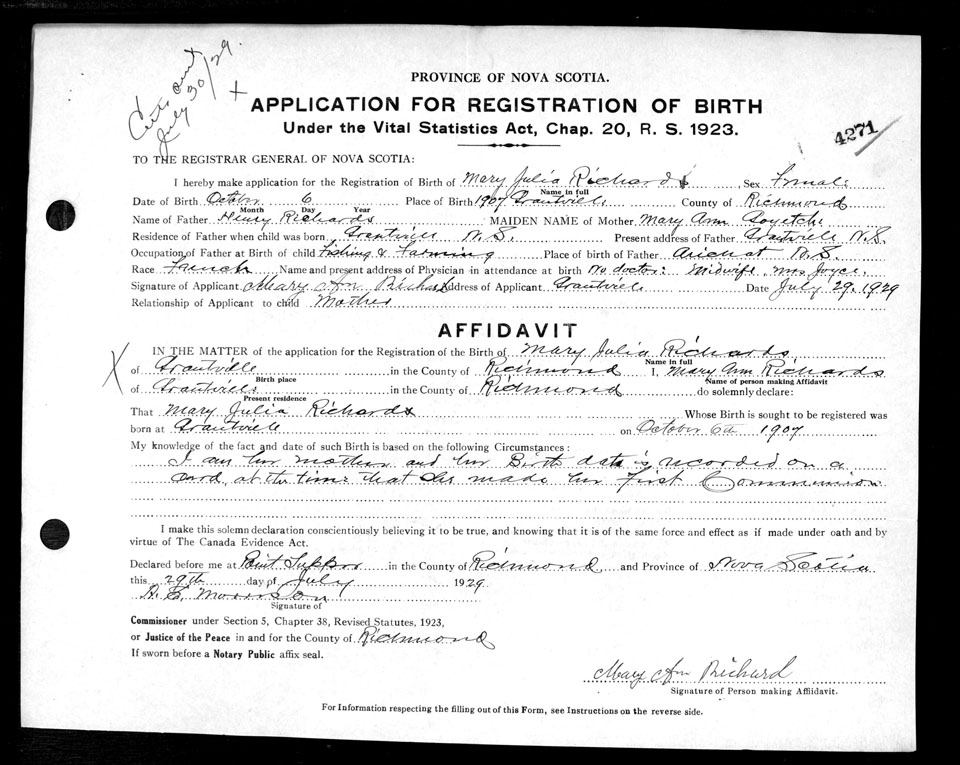 Certs out
July 30/29.
PROVINCE OF NOVA SCOTIA.
APPLICATION FOR REGISTRATION OF BIRTH
Under the Vital Statistics Act, Chap. 20, R. S. 1923.
4271
TO THE REGISTRAR GENERAL OF NOVA SCOTIA:
I hereby make application for the Registration of Birth of Mary Julia Richards Sex Female
Name in full
Date of Birth October 6 1907 Place of Birth Grantville County of Richmond
Month Day Year
Name of Father Henry Richards MAIDEN NAME of Mother Mary Ann
Residence of Father when child was born Grantville N.S. Present address of Father Grantville N.S.
Occupation of Father at Birth of child Fishing & Farming Place of birth of Father Arichat N.S.
Race French Name and present address of Physician in attendance at birth No doctor: Midwife, Mrs Joyce.
Signature of Applicant Mary Ann Richard Address of Applicant Grantville Date July 29, 1929
Relationship of Applicant to child Mother
AFFIDAVIT
IN THE MATTER of the application for the Registration of the Birth of Mary Julia Richards
Name in full
of Grantville in the County of Richmond I, Mary Ann Richards
Birth place Name of person making Affidavit
of Grantville in the County of Richmond do solemnly declare:
Present residence
That Mary Julia Richards Whose Birth is sought to be registered was
born at Grantville on October 6th 1907
My knowledge of the fact and date of such Birth is based on the following Circumstances:
I am her mother and her Birth date is recorded on a
card, at the time that she made her First Communion
I make this solemn declaration conscientiously believing it to be true, and knowing that it is of the same force and effect as if made under oath and by
virtue of The Canada Evidence Act.
Declared before me at Point Tupper in the County of Richmond and Province of Nova Scotia
this 29th day of July 1929
Morrison
Signature of
Commissioner under Section 5, Chapter 38, Revised Statutes, 1923,
or Justice of the Peace in and for the County of Richmond
If sworn before a Notary Public affix seal.
Mary Ann Richard
Signature of Person making Affidavit.
For Information respecting the filling out of this Form, see Instructions on the reverse side.